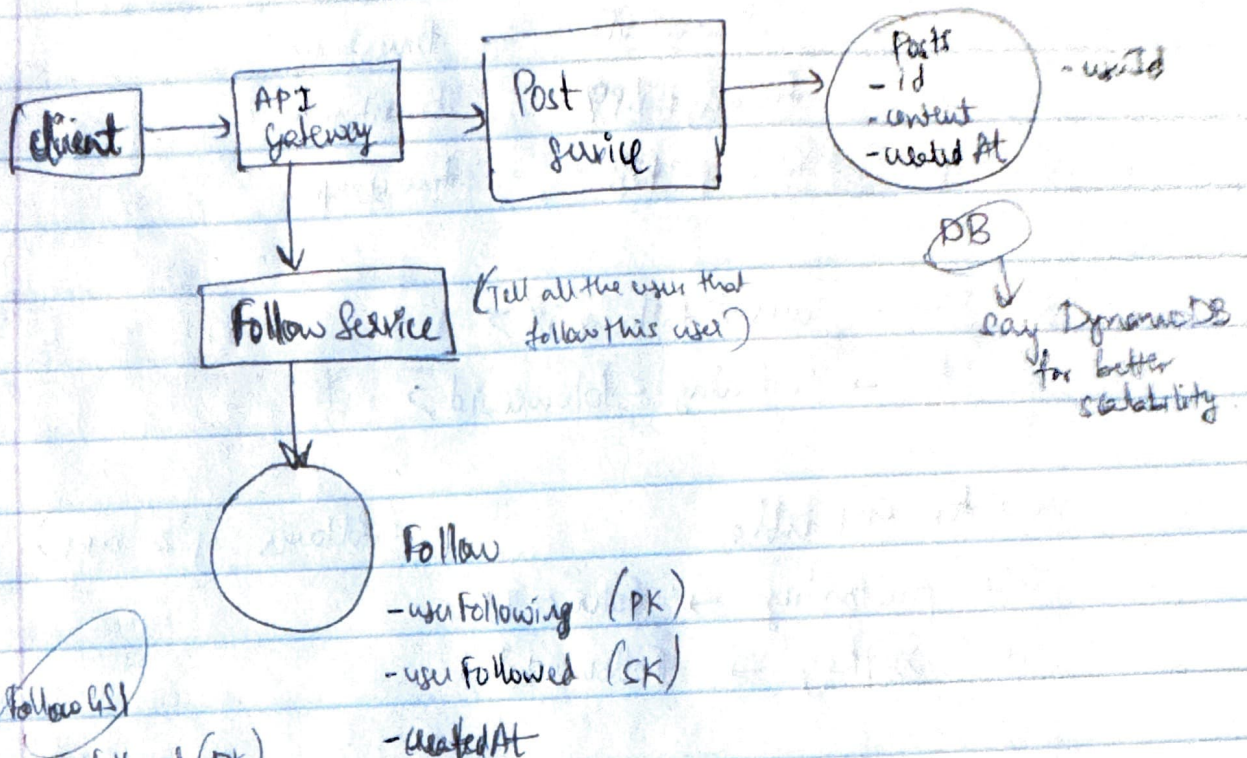 client
API
Gateway
Post
service
Posts
- id
- content
- createdAt
- userId
DB
say DynamoDB
for better
scalability
Follow Service
(Tell all the users that
follow this user)
Follow
- userFollowing (PK)
- userFollowed (SK)
- createdAt
Follow GSI
(PK)